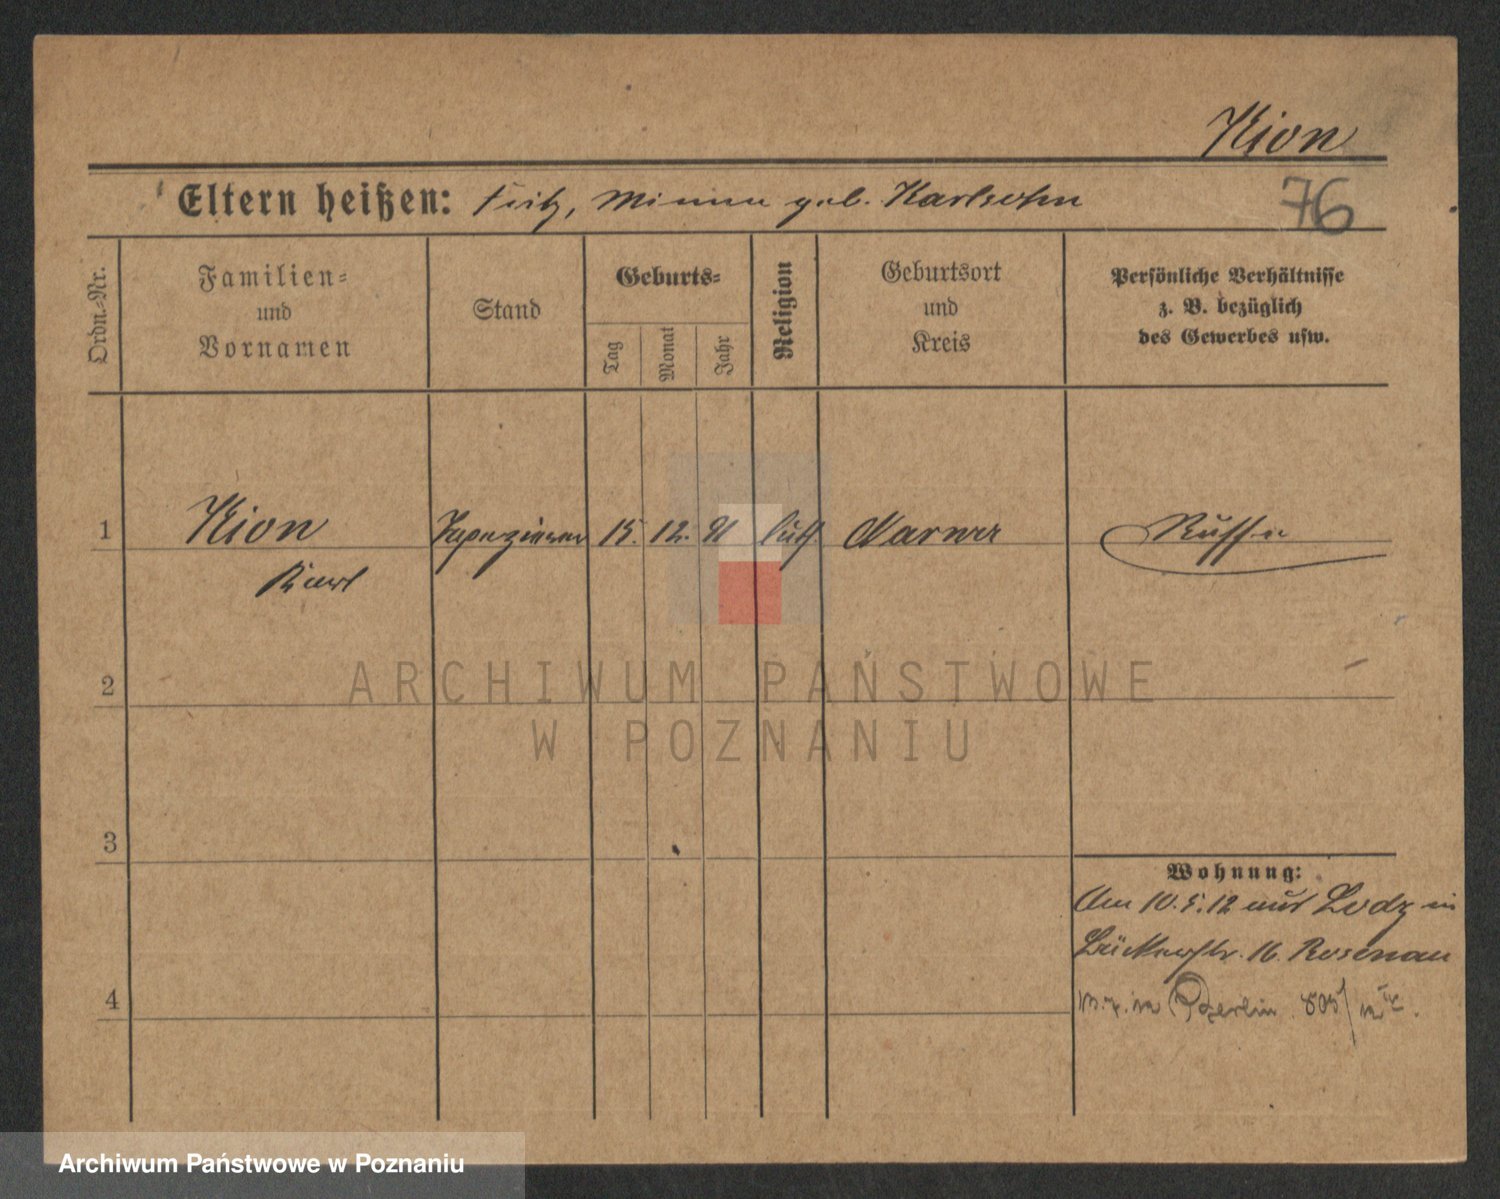 Kion
Eltern heißen: Fritz, Minna geb. Karlsohn
76
Ordn.-Nr.
Familien-
und
Vornamen
Stand
Geburts-
Tag
Monat
Jahr
Religion
Geburtsort
und
Kreis
Persönliche Verhältnisse
z. B. bezüglich
des Gewerbes usw.
1
Kion
Karl
Tapezierer
15. 12. 91
luth
Narwa
Russe
2
ARCHIWUM PAŃSTWOWE
W POZNANIU
3
Wohnung:
Am 10.5.12 aus Lodz in
Bäckerstr. 16. Rosenau
4
Berlin
Archiwum Państwowe w Poznaniu